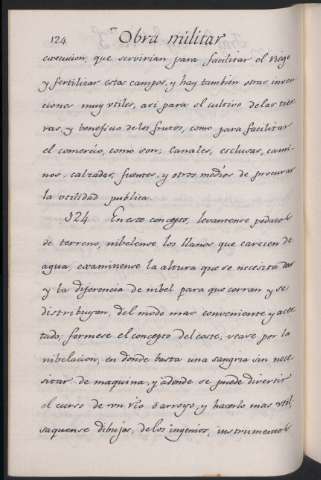 124
Obra militar
execucion, que servirian para facilitar el Riego
y fertilizar estos campos, y hay tambien otras inven
ciones muy utiles, asi para el cultivo de las tier
ras, y beneficio de los frutos, como para facilitar
el comercio, como son, Canales, esclusas, cami
nos, calzadas, fuentes, y otros medios de procurar
la utilidad publica.
324. En este concepto, levantense pedazos
de terreno, nibelense los llanos que carecen de
agua, examinese la altura que se necesita dar
y la diferencia de nibel para que corran y se
distribuyan, del modo mas conveniente y acer
tado; formese el concepto del coste, vease por la
nibelacion, en donde basta una sangria sin nece
sitar de maquina, y adonde se puede divertir
el curso de un rio ò arroyo, y hacerlo mas util,
saquense dibujos, de los ingenios, instrumentos